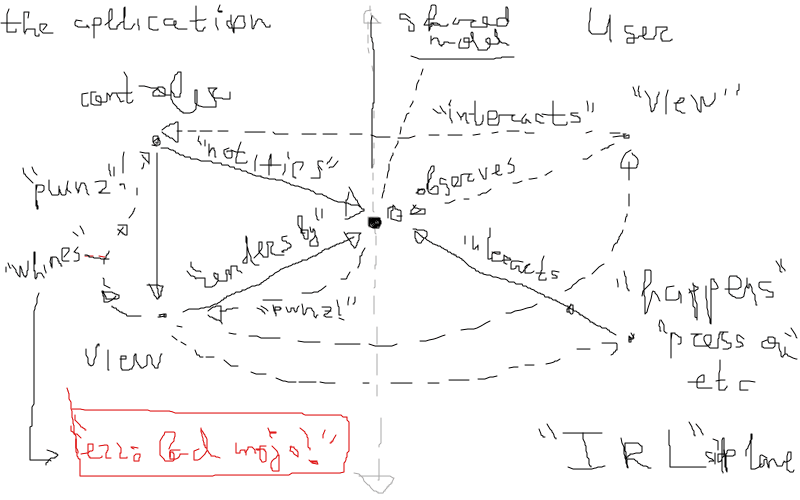 the application
shared
model
User
controller
"interacts"
"View"
"notifies"
observes
"pwnz"
"renders by"
"whines"
"interacts
"happens"
"pwnz!"
"press on"
etc
View
bad mojo!"
"IRL"